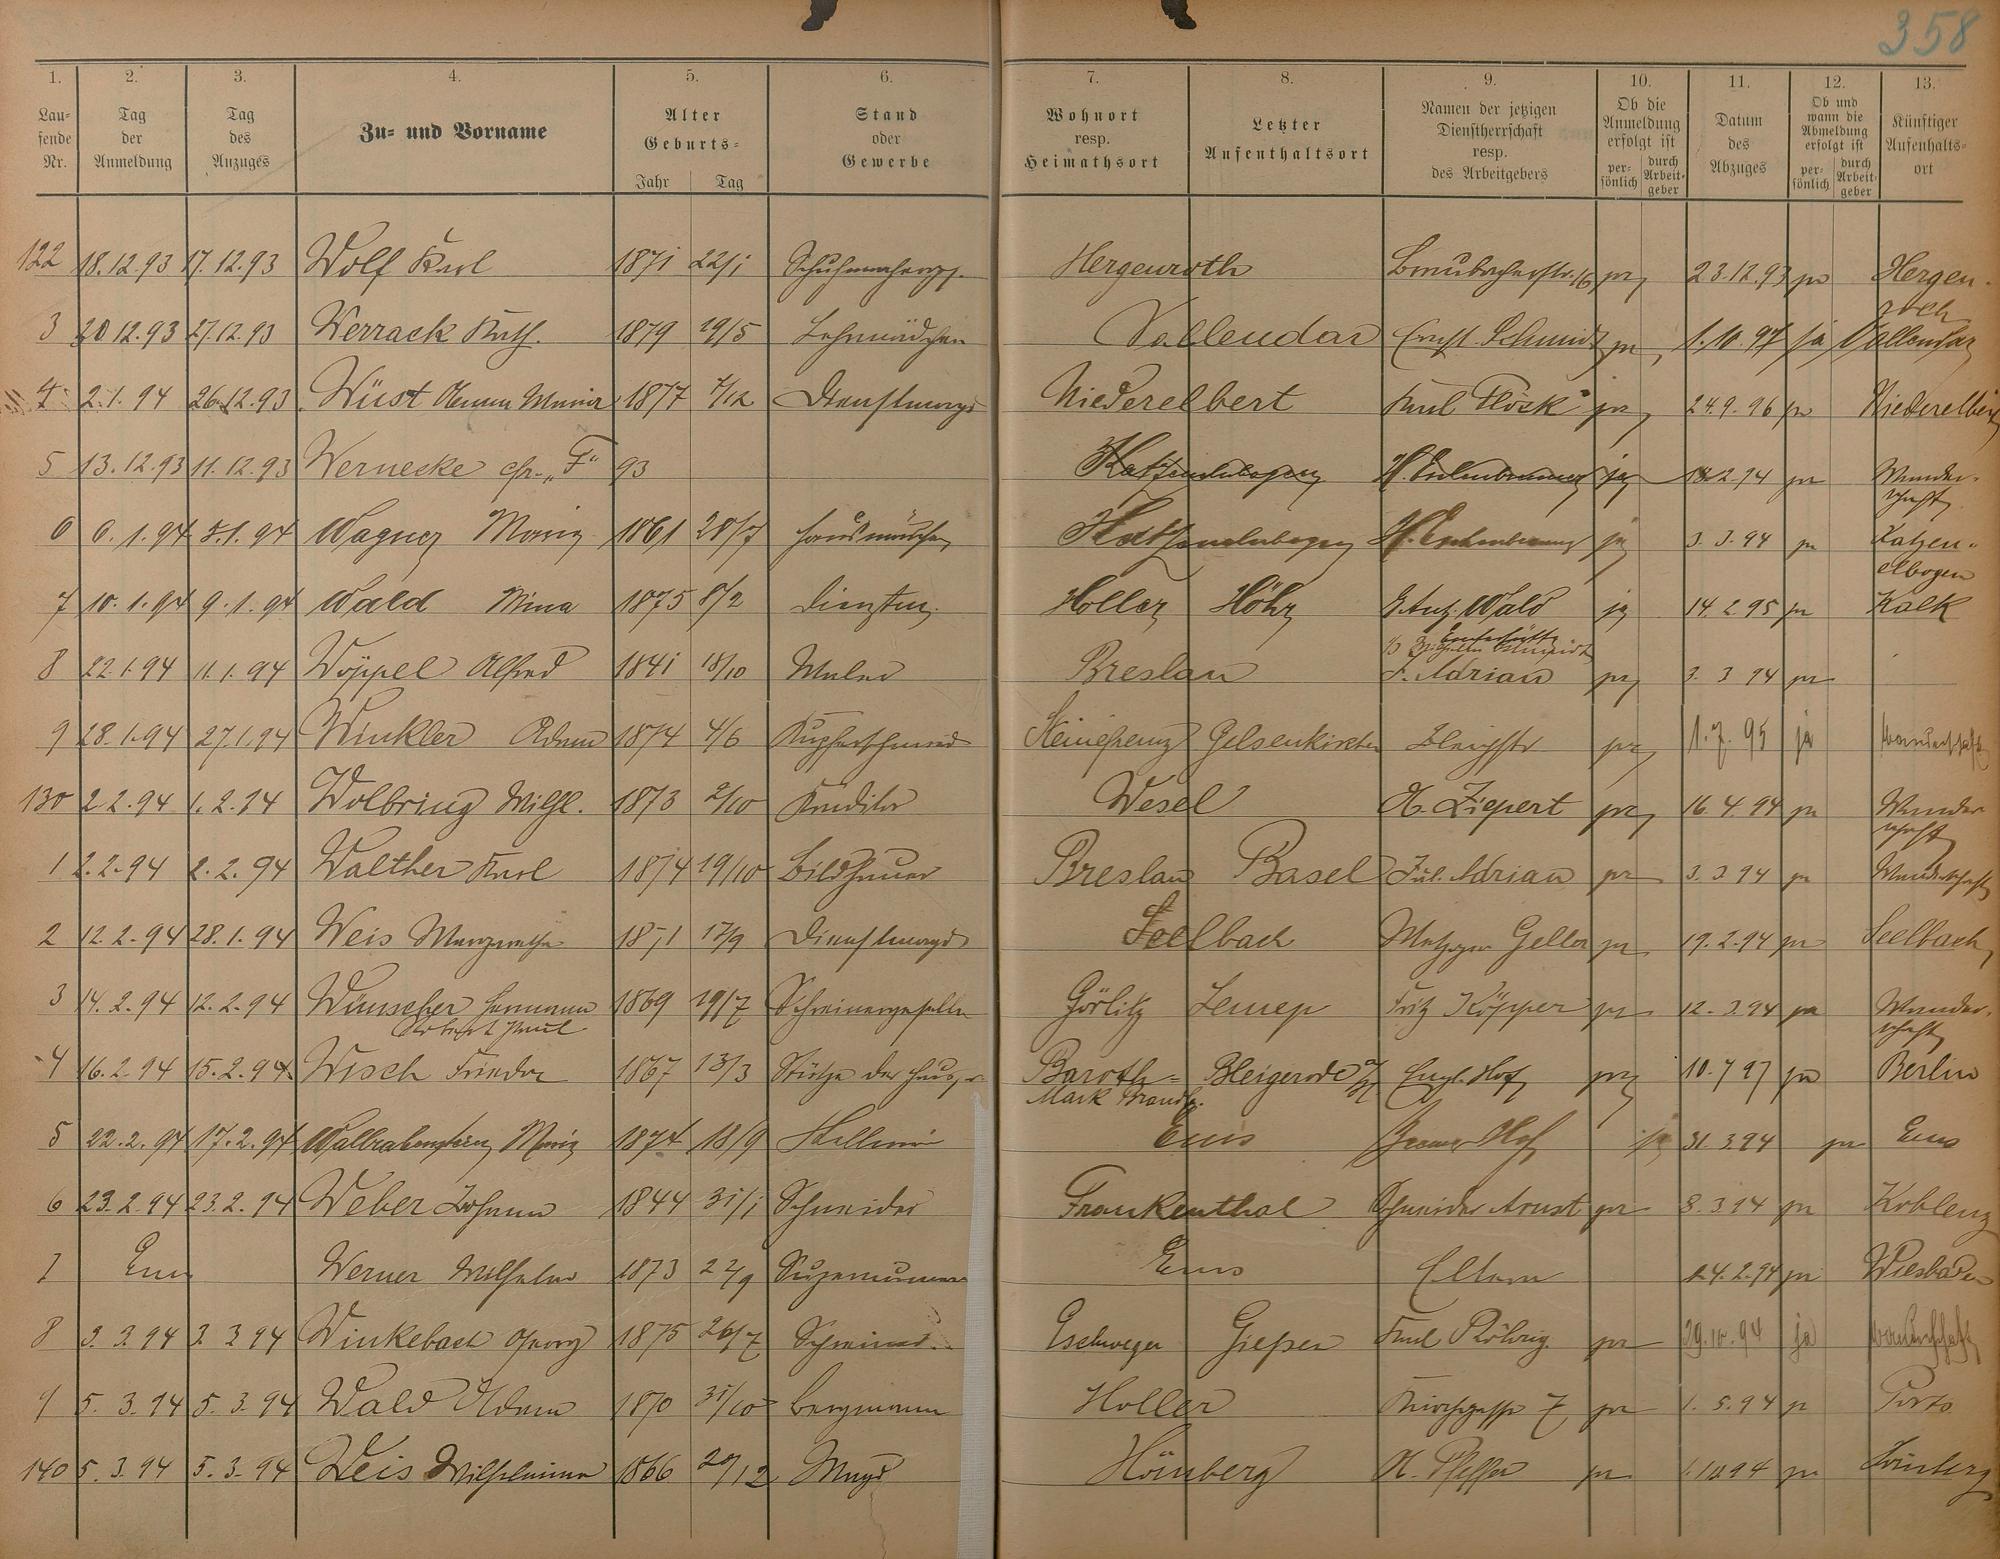 358
1. 2. 3. 4. 5. 6. 7. 8. 9. 10. 11. 12. 13.
Lau-
fende
Nr.
Tag
der
Anmeldung
Tag
des
Anzuges
Zu- und Vorname
Alter
Geburts-
Jahr Tag
Stand
oder
Gewerbe
Wohnort
resp.
Heimathsort
Letzter
Aufenthaltsort
Namen der jetzigen
Dienstherrschaft
resp.
des Arbeitgebers
Ob die
Anmeldung
erfolgt ist
per-
sönlich
durch
Arbeit-
geber
Datum
des
Abzuges
Ob und
wann die
Abmeldung
erfolgt ist
per-
sönlich
durch
Arbeit-
geber
Künftiger
Aufenthalts-
ort
122 18.12.93 17.12.93 Wolf Karl 1871 22/1 Hergenroth 23.12.93 Hergen-
roth
3 20 12.93 27.12.93 Werrack Kath. 1879 19/5 Lehrmädchen Vallendar Ernst Schmidt 1.10.97 ja Vallendar
4 2.1.94 26.12.93 Wüst Anna Maria 1877 7/12 Dienstmagd Niederelbert Karl Flöck 24.9.96 Niederelbert
5 13.12.93 11.12.93 Wernecke cfr. „F“ 93 Katzenelnbogen ja 18.2.94 Wander-
schaft
6 6.1.94 5.1.94 Wagner Maria 1861 28/7 Hausmädchen Katzenelnbogen ja 3.3.94 Katzen-
elbogen
7 10.1.94 9.1.94 Wald Nina 1875 8/2 Dienstm. Holler Höhr Wald ja 14.2.95 Kalk
8 22.1.94 11.1.94 Wöppel Alfred 1841 18/10 Maler Breslau J. Adrian 3.3.94
9 28.1.94 27.1.94 Winkler Adam 1874 4/6 Kupferschmied Gelsenkirchen 1.7.95 ja Wanderschaft
130 2.2.94 1.2.94 Wolbring Wilh. 1873 2/10 Konditor Wesel H. Ziepert 16.4.94 Wander
schaft
1 2.2.94 2.2.94 Walther Karl 1874 19/10 Bildhauer Breslau Basel Jul. Adrian 3.3.94 Wanderschaft
2 12.2.94 28.1.94 Weis Margarethe 1871 17/9 Dienstmagd Seelbach Metzger Geller 19.2.94 Seelbach
3 14.2.94 12.2.94 Wünscher Hermann 1869 19/7 Schreinergeselle Görlitz Lennep Fritz Köpper 12.3.94 Wander-
schaft
4 16.2.94 15.2.94 Wisch Frieda 1867 13/3 Stütze der Hausfr. Baroth- Bleigerode Engl. Hof 10.7 97 Berlin
Mark Brandbg.
5 22.2.94 17.2.94 Wallrabenstein Maria 1874 18/9 Ems Hof ja 31.3.94 Ems
6 23.2.94 23.2.94 Weber Johann 1844 31/1 Schneider Frankenthal Schneider Arnst 8.3.94 Koblenz
7 Ems Werner Wilhelm 1873 22/9 Ems Eltern 4.2.94 Wiesbaden
8 3.3.94 3.3.94 Winkebach Georg 1875 26/7 Schreiner Eschweger Gießen Karl Röhrig 29.10.94 ja Wanderschaft
9 5.3.94 5.3.94 Wald Adam 1870 31/10 Bergmann Holler Kirchgasse 7 1.5.94
140 5.3.94 5.3.94 Weis Wilhelmine 1866 20/12 Magd Hömberg H. Pfeffer 1.10.94 Hömberg